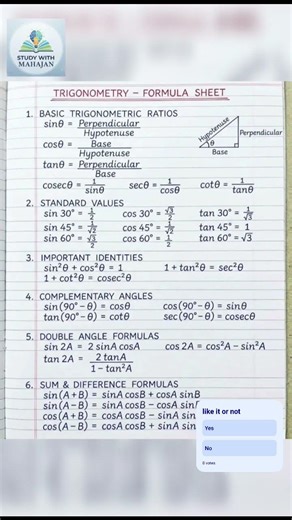 STUDY WITH
MAHAJAN
TRIGONOMETRY – FORMULA SHEET
1. BASIC TRIGONOMETRIC RATIOS
sinθ = Perpendicular / Hypotenuse
cosθ = Base / Hypotenuse
tanθ = Perpendicular / Base
Hypotenuse
Perpendicular
θ
Base
cosecθ = 1/sinθ secθ = 1/cosθ cotθ = 1/tanθ
2. STANDARD VALUES
sin 30° = 1/2 cos 30° = √3/2 tan 30° = 1/√3
sin 45° = 1/√2 cos 45° = 1/√2 tan 45° = 1
sin 60° = √3/2 cos 60° = 1/2 tan 60° = √3
3. IMPORTANT IDENTITIES
sin²θ + cos²θ = 1 1 + tan²θ = sec²θ
1 + cot²θ = cosec²θ
4. COMPLEMENTARY ANGLES
sin(90° – θ) = cosθ cos(90° – θ) = sinθ
tan(90° – θ) = cotθ sec(90° – θ) = cosecθ
5. DOUBLE ANGLE FORMULAS
sin 2A = 2 sinA cosA cos 2A = cos²A – sin²A
tan 2A = 2tanA / 1 – tan²A
6. SUM & DIFFERENCE FORMULAS
sin(A + B) = sinA cosB + cosA sinB
sin(A – B) = sinA cosB – cosA sin
cos(A + B) = cosA cosB – sinA sin
cos(A – B) = cosA cosB + sinA sin
like it or not
Yes
No